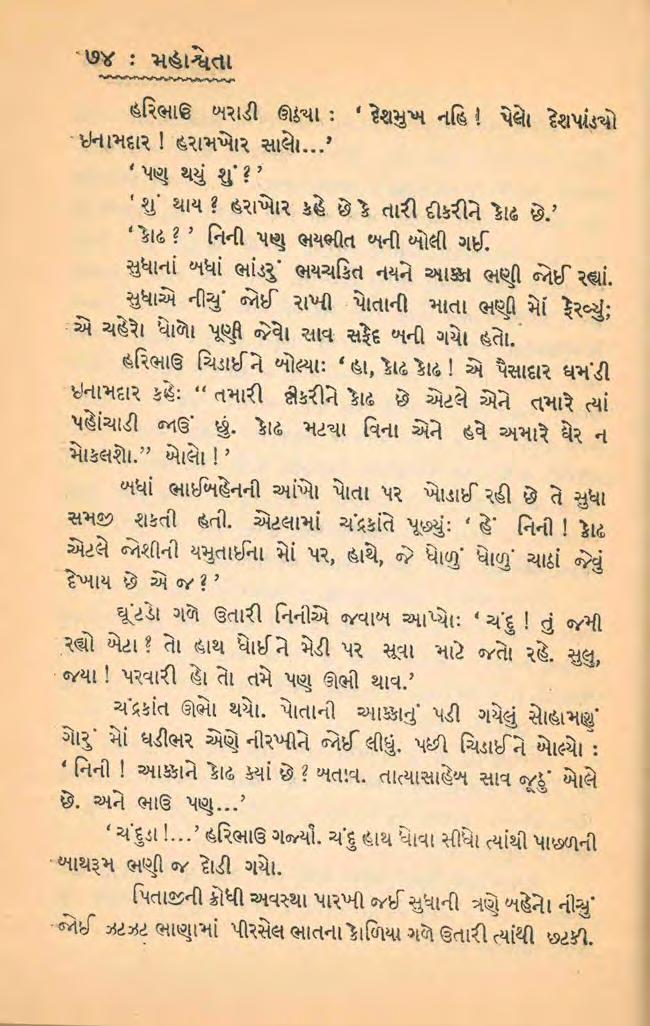 ૭૪ : મહાશ્વેતા
હરિભાઉ બરાડી ઊઠ્યા : ‘ દેશમુખ નહિ ! પેલો દેશપાંડ્યો
ઇનામદાર ! હરામખોર સાલો...’
‘ પણ થયું શું ? ’
‘ શું થાય ? હરાખોર કહે છે કે તારી દીકરીને કોઢ છે.’
‘ કોઢ ? ’ નિની પણ ભયભીત બની બોલી ગઈ.
સુધાનાં બધાં ભાંડરું ભયચકિત નયને આક્કા ભણી જોઈ રહ્યાં.
સુધાએ નીચું જોઈ રાખી પોતાની માતા ભણી મોં ફેરવ્યું;
એ ચહેરો ધોળો પૂણી જેવો સાવ સફેદ બની ગયો હતો.
હરિભાઉ ચિડાઈને બોલ્યાઃ ‘ હા, કોઢ કોઢ ! એ પૈસાદાર ઘમંડી
ઇનામદાર કહેઃ “ તમારી દીકરીને કોઢ છે એટલે એને તમારે ત્યાં
પહોંચાડી જાઉં છું. કોઢ મટ્યા વિના એને હવે અમારે ઘેર ન
મોકલશો.” બોલો ! ’
બધાં ભાઈબહેનની આંખો પોતા પર ખોડાઈ રહી છે તે સુધા
સમજી શકતી હતી. એટલામાં ચંદ્રકાંતે પૂછ્યુંઃ ‘ હેં નિની ! કોઢ
એટલે જોશીની યમુતાઈના મોં પર, હાથે, જે ધોળું ધોળું ચાઠાં જેવું
દેખાય છે એ જ ? ’
ઘૂંટડો ગળે ઉતારી નિનીએ જવાબ આપ્યોઃ ‘ ચંદુ ! તું જમી
રહ્યો બેટા ? તો હાથ ધોઈને મેડી પર સૂવા માટે જતો રહે. સુલુ,
જયા ! પરવારી હો તો તમે પણ ઊભી થાવ.’
ચંદ્રકાંત ઊભો થયો. પોતાની આક્કાનું પડી ગયેલું સોહામણું
ગોરું મોં ઘડીભર એણે નીરખીને જોઈ લીધું. પછી ચિડાઈને બોલ્યો :
‘ નિની ! આક્કાને કોઢ ક્યાં છે ? બતાવ. તાત્યાસાહેબ સાવ જૂઠ્ઠું બોલે
છે. અને ભાઉ પણ...’
‘ ચંદુડા !...’ હરિભાઉ ગર્જ્યા. ચંદુ હાથ ધોવા સીધો ત્યાંથી પાછળની
બાથરૂમ ભણી જ દોડી ગયો.
પિતાજીની ક્રોધી અવસ્થા પારખી જઈ સુધાની ત્રણે બહેનો નીચું
જોઈ ઝટઝટ ભાણામાં પીરસેલ ભાતના કોળિયા ગળે ઉતારી ત્યાંથી છટકી.